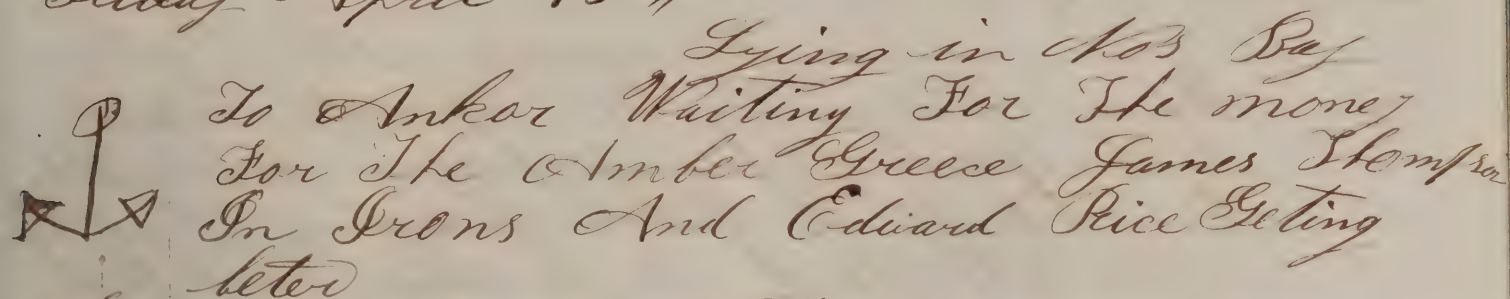 April
Lying in Nos Bay
To Ankor Waiting For The money
For The Amber Greece James Thompson
In Irons And Edward Rice Geting
beter